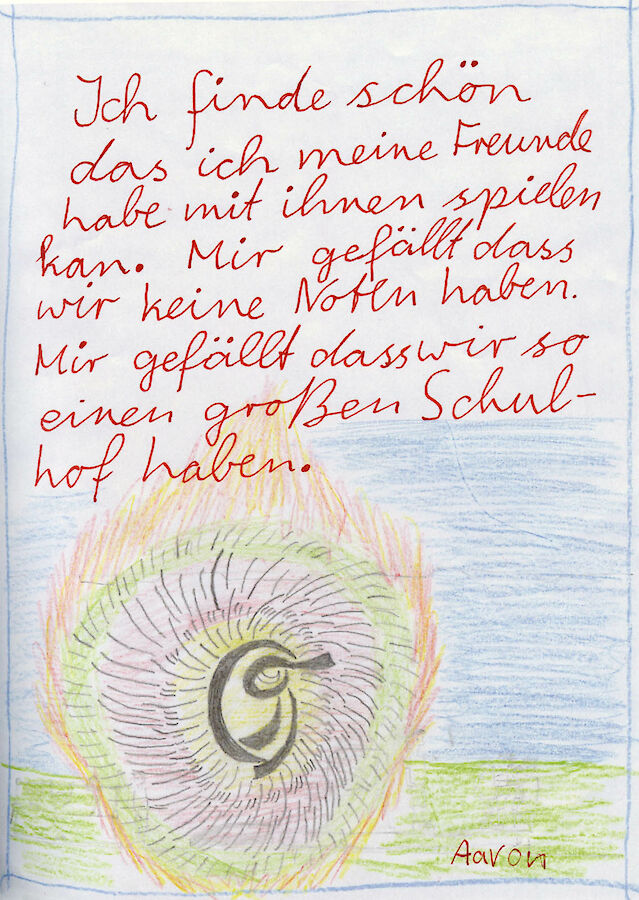 Ich finde schön
das ich meine Freunde
habe mit ihnen spielen
kan. Mir gefällt dass
wir keine Noten haben.
Mir gefällt dass wir so
einen großen Schul-
hof haben.
Aaron